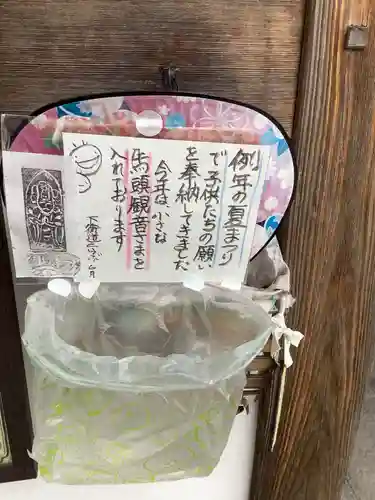 例年の夏まつり
で子供たちの願い
を奉納してきました
今年は小さな
馬頭観音さまを
入れております